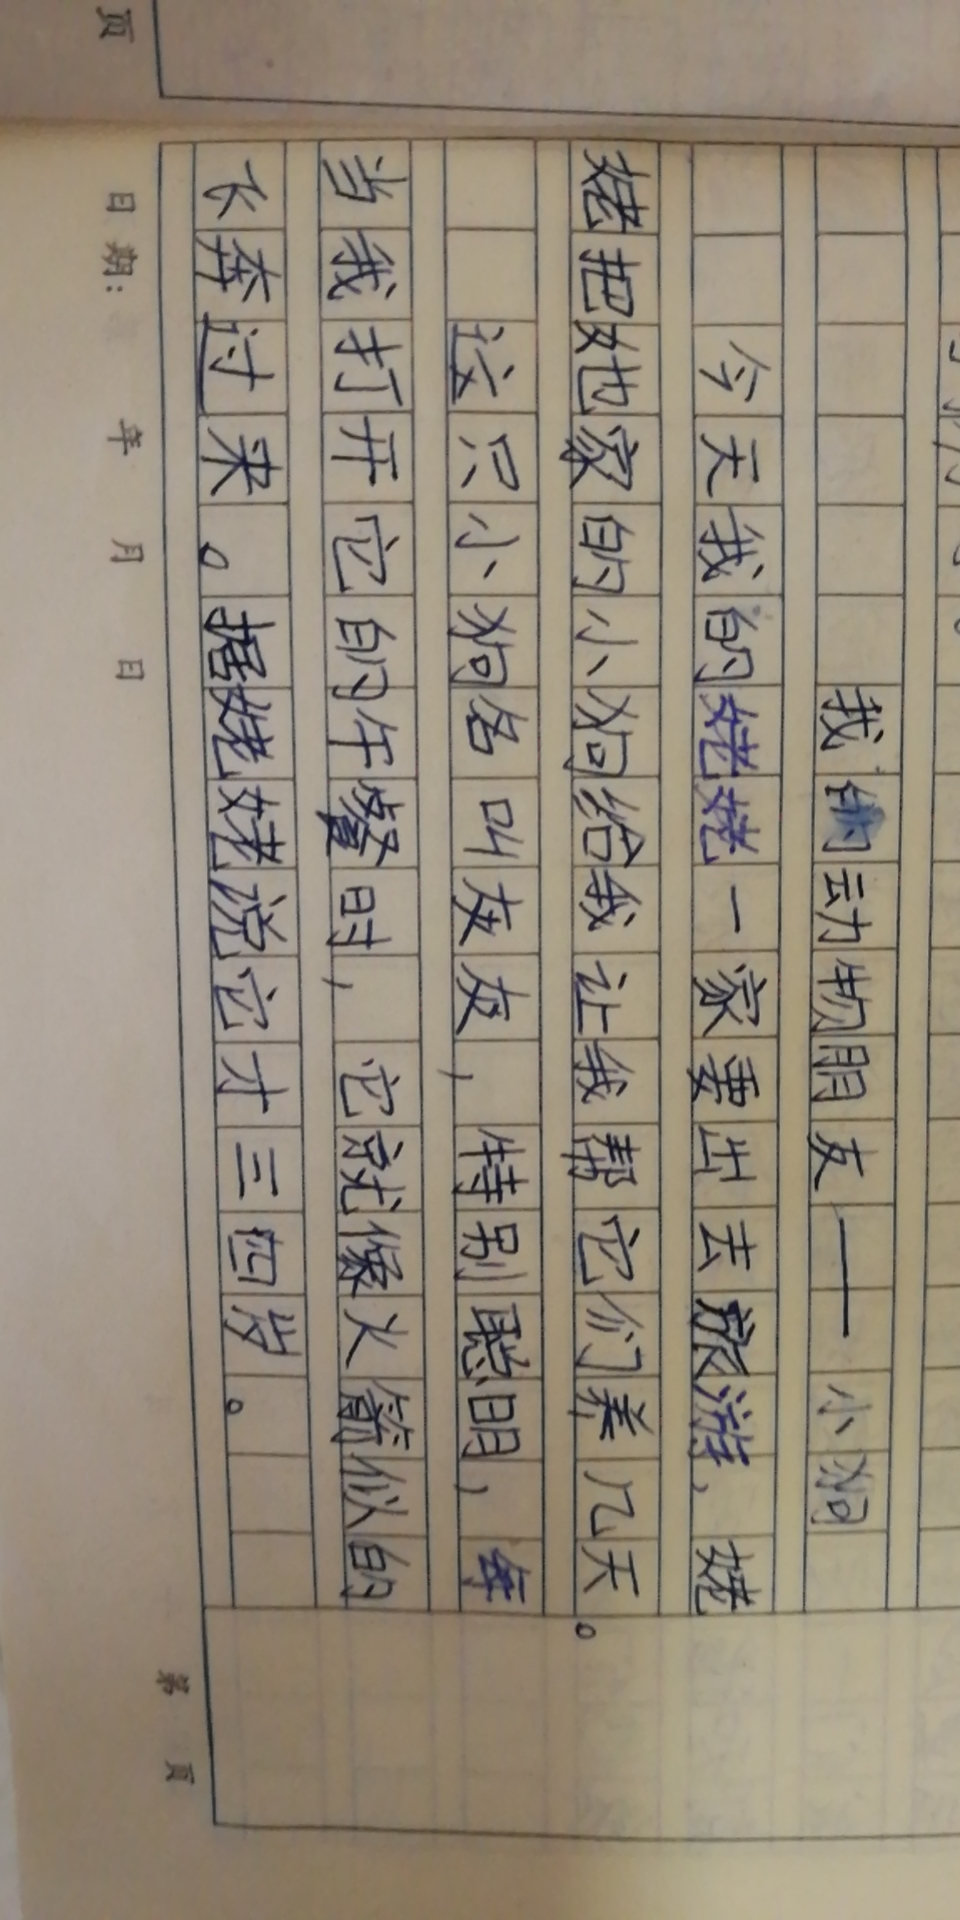 我的动物朋友——小狗
今天我的姥姥一家要出去旅游，姥
姥把她家的小狗给我让我帮它们养几天。
这只小狗名叫灰灰，特别聪明，每
当我打开它的午餐时，它就像火箭似的
飞奔过来。据姥姥说它才三四岁。
日期： 年 月 日
第 页
页